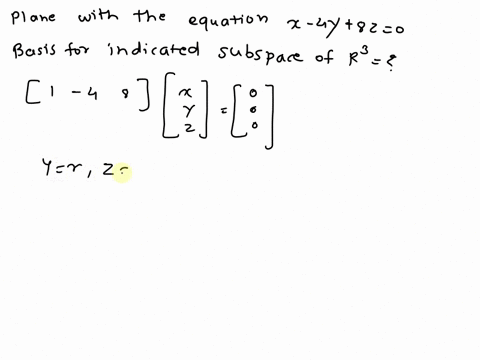 Plane with the equation x-4y+8z=0
Basis for indicated subspace of R³=?
[1 -4 8] [x y z] = [0 0 0]
Y=r, z=